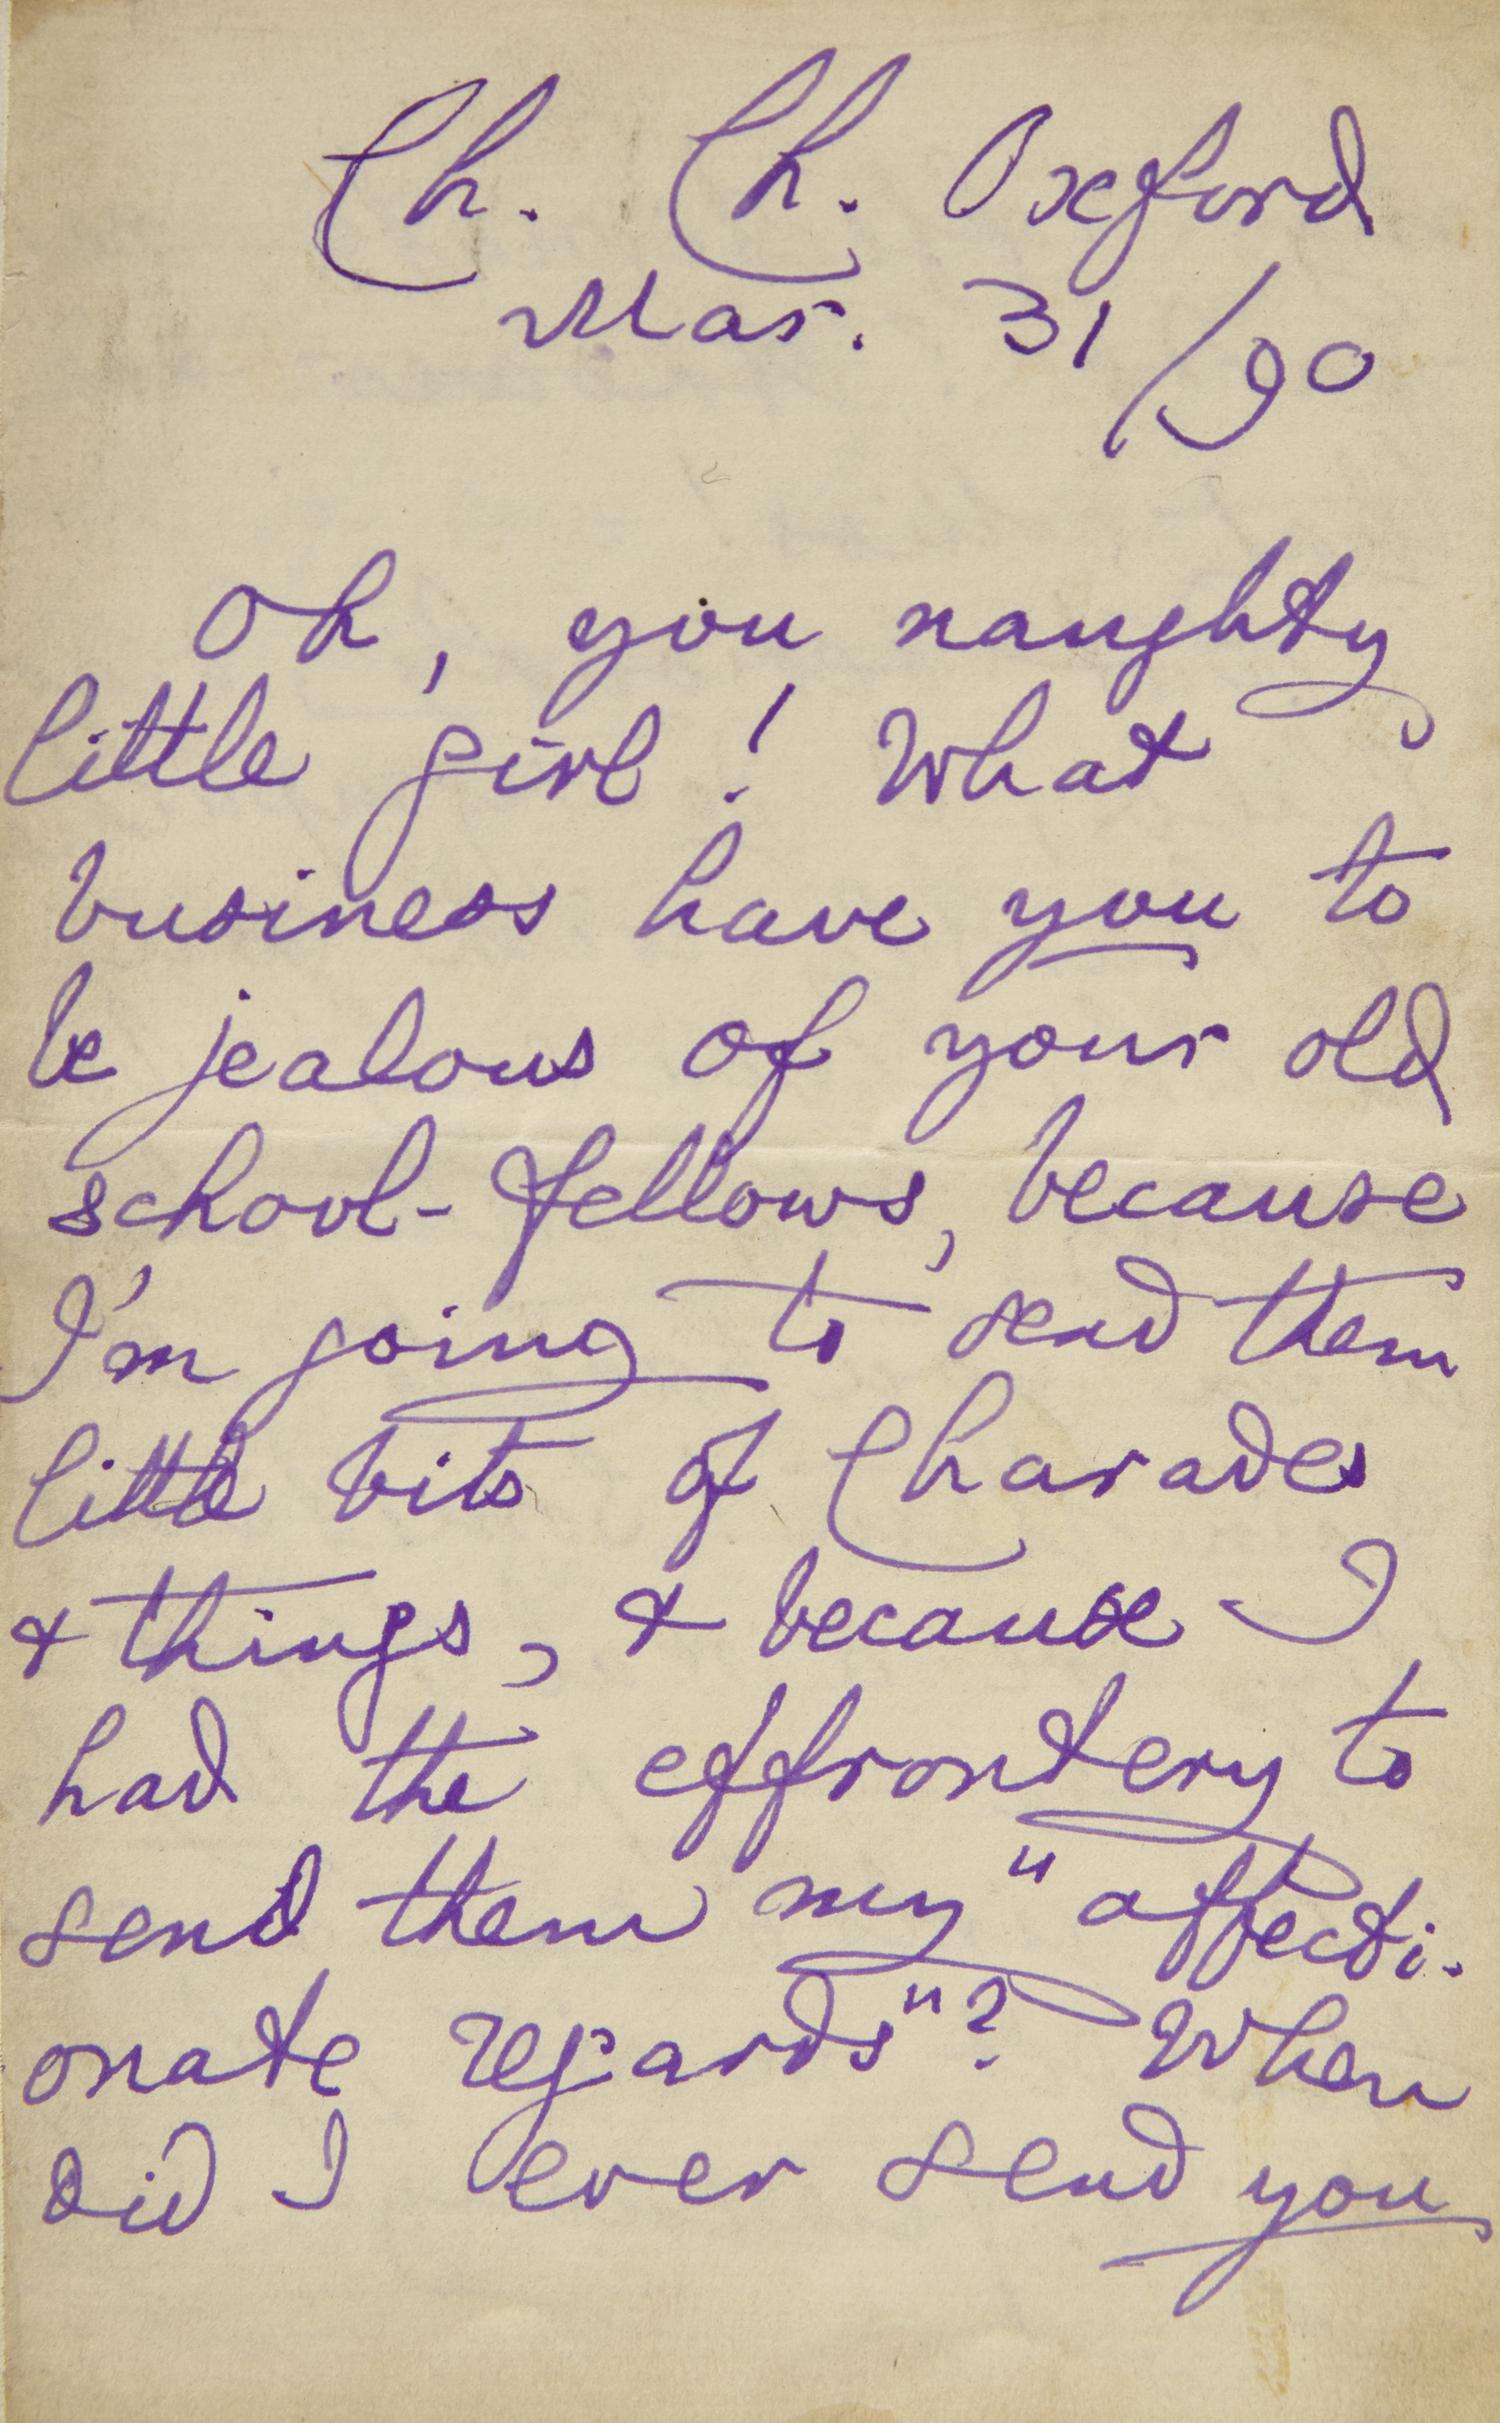 Ch. Ch. Oxford
Mar. 31/90
Oh, you naughty
little girl! What
business have you to
be jealous of your old
school-fellows, because
I'm going to send them
little bits of Charades
& things, & because I
had the effrontery to
send them my "affecti-
onate regards"? When
did I ever send you